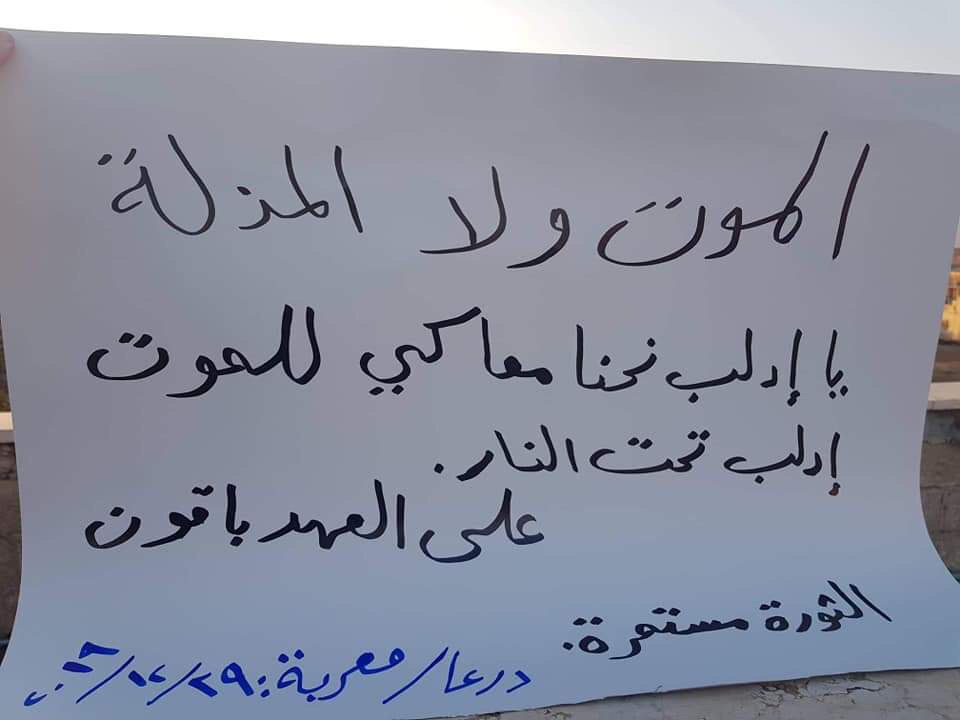 الموت ولا المذلة
يا إدلب نحنا معاكي للموت
إدلب تحت النار.
على العهد باقون
الثورة مستمرة.
درعا/معربة: ٢٩/١٢/